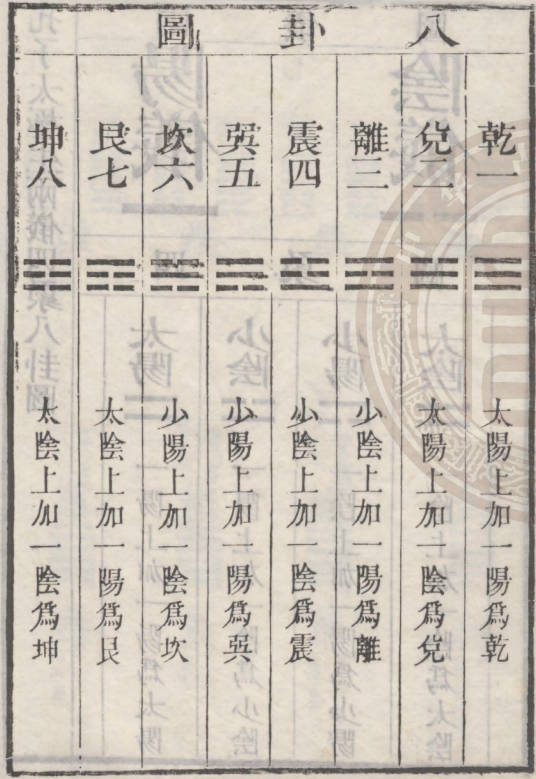 八卦圖
乾一
太陽上加一陽爲乾
兌二
太陽上加一陰爲兌
離三
少陰上加一陽爲離
震四
少陰上加一陰爲震
巽五
少陽上加一陽爲巽
坎六
少陽上加一陰爲坎
艮七
太陰上加一陽爲艮
坤八
太陰上加一陰爲坤